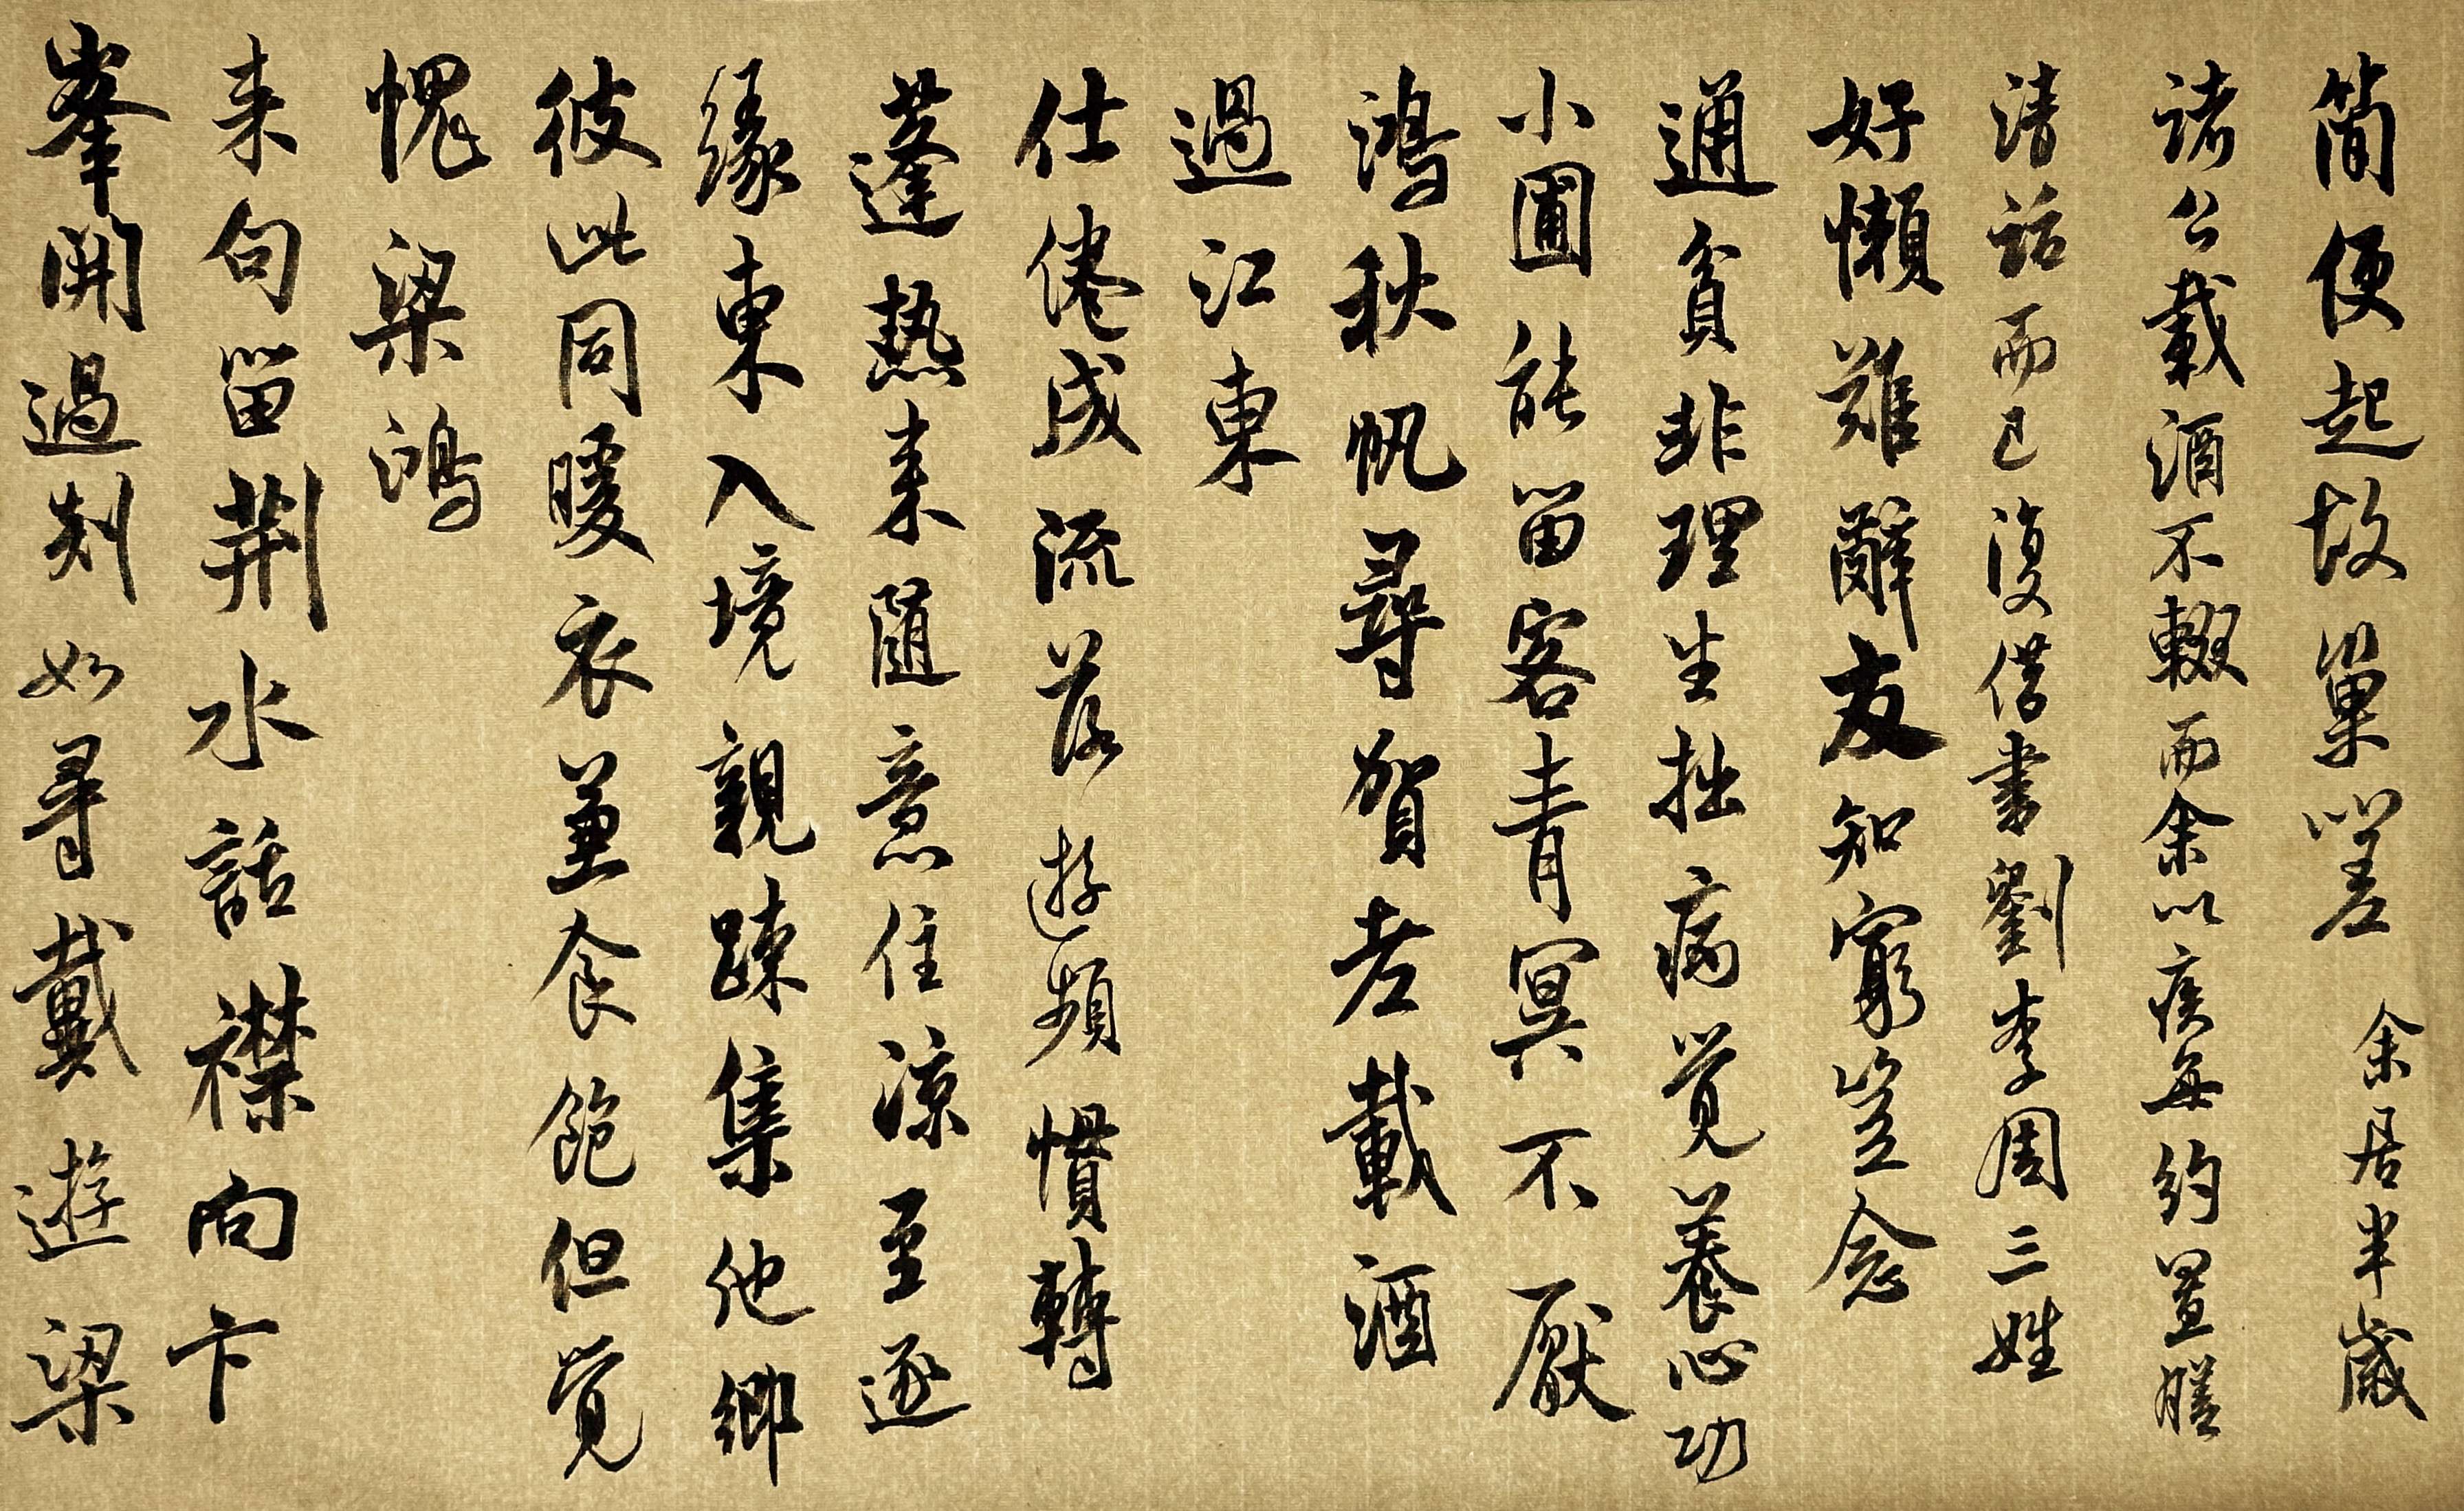 簡便起故巢嗟 余居半歲
諸公載酒不輟而余以疾每約置膳
清話而已復借書劉李周三姓
好懶難辭友知窮豈念
通貧非理生拙病覺養心功
小圃能留客青冥不厭
鴻秋帆尋賀老載酒
過江東
仕倦成流落遊頻慣轉
蓬熱來隨意住涼至逐
緣東入境親疎集他鄉
彼此同暖衣兼食飽但覺
愧梁鴻
來句留荆水話襟向卞
峯開過剡如尋戴遊梁